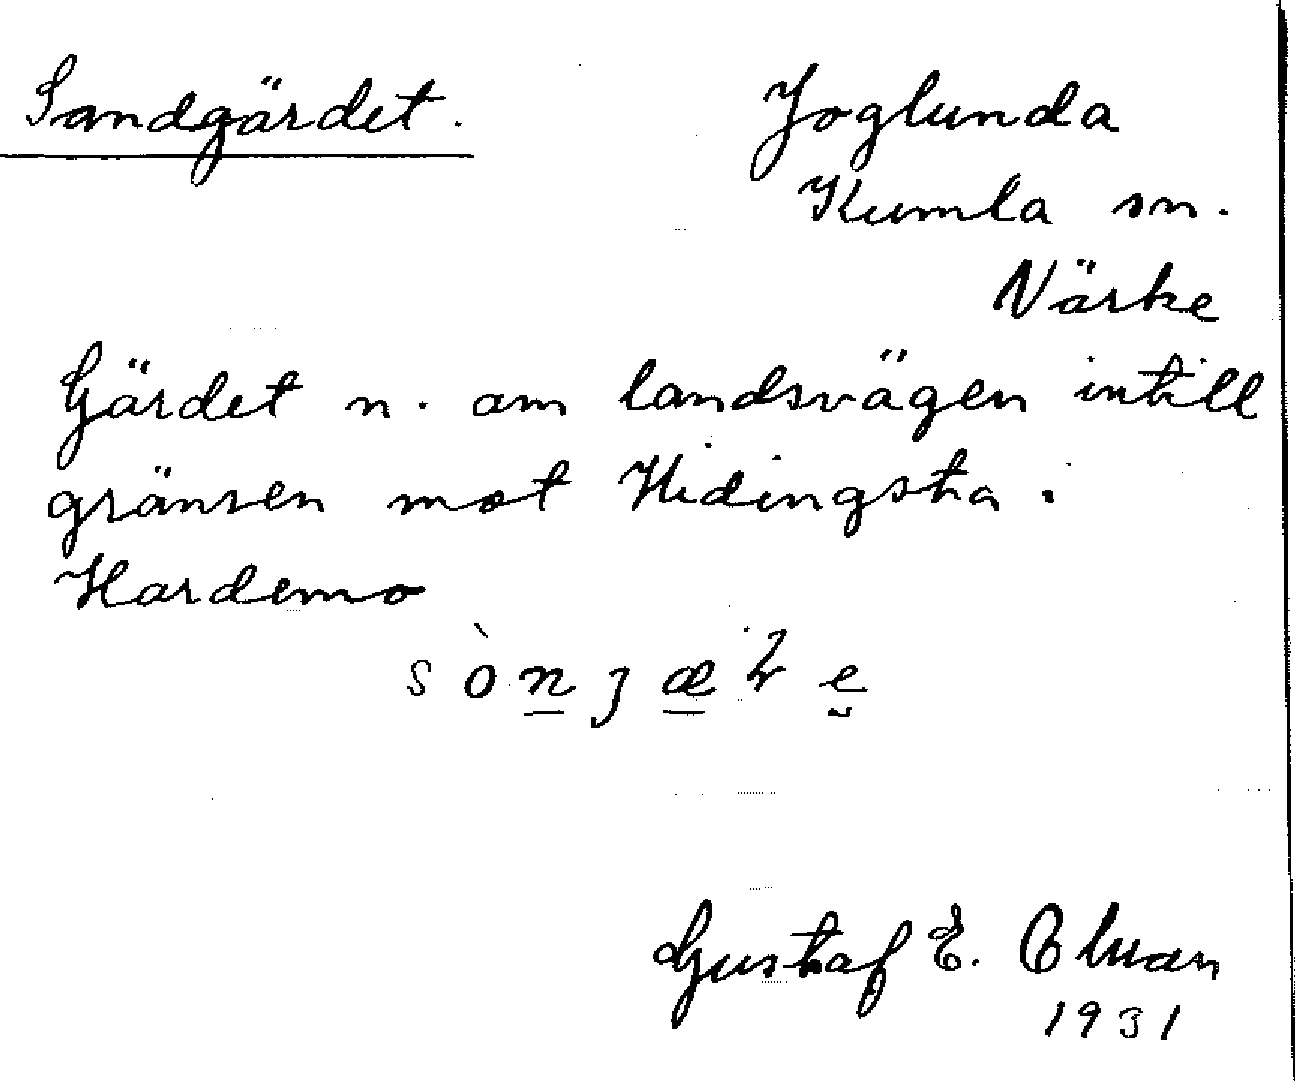 Sandgärdet.
Joglunda
Kumla sn.
Närke
Gärdet n. om landsvägen intill
gränsen mot Hidingsta.
Hardemo
Gustaf E.
1931